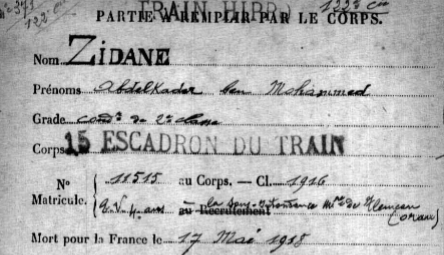 TRAIN HIPP
122e Cie
PARTIE À REMPLIR PAR LE CORPS.
Nom ZIDANE
Prénoms Abdelkader ben Mohammed
Grade condr de 2e classe
Corps 15 ESCADRON DU TRAIN
No Matricule. 11515 au Corps. — Cl. 1916
E.V. 4 ans au Recrutement la sous-Intendance mre de Tlemcen (Oran)
Mort pour la France le 17 Mai 1918